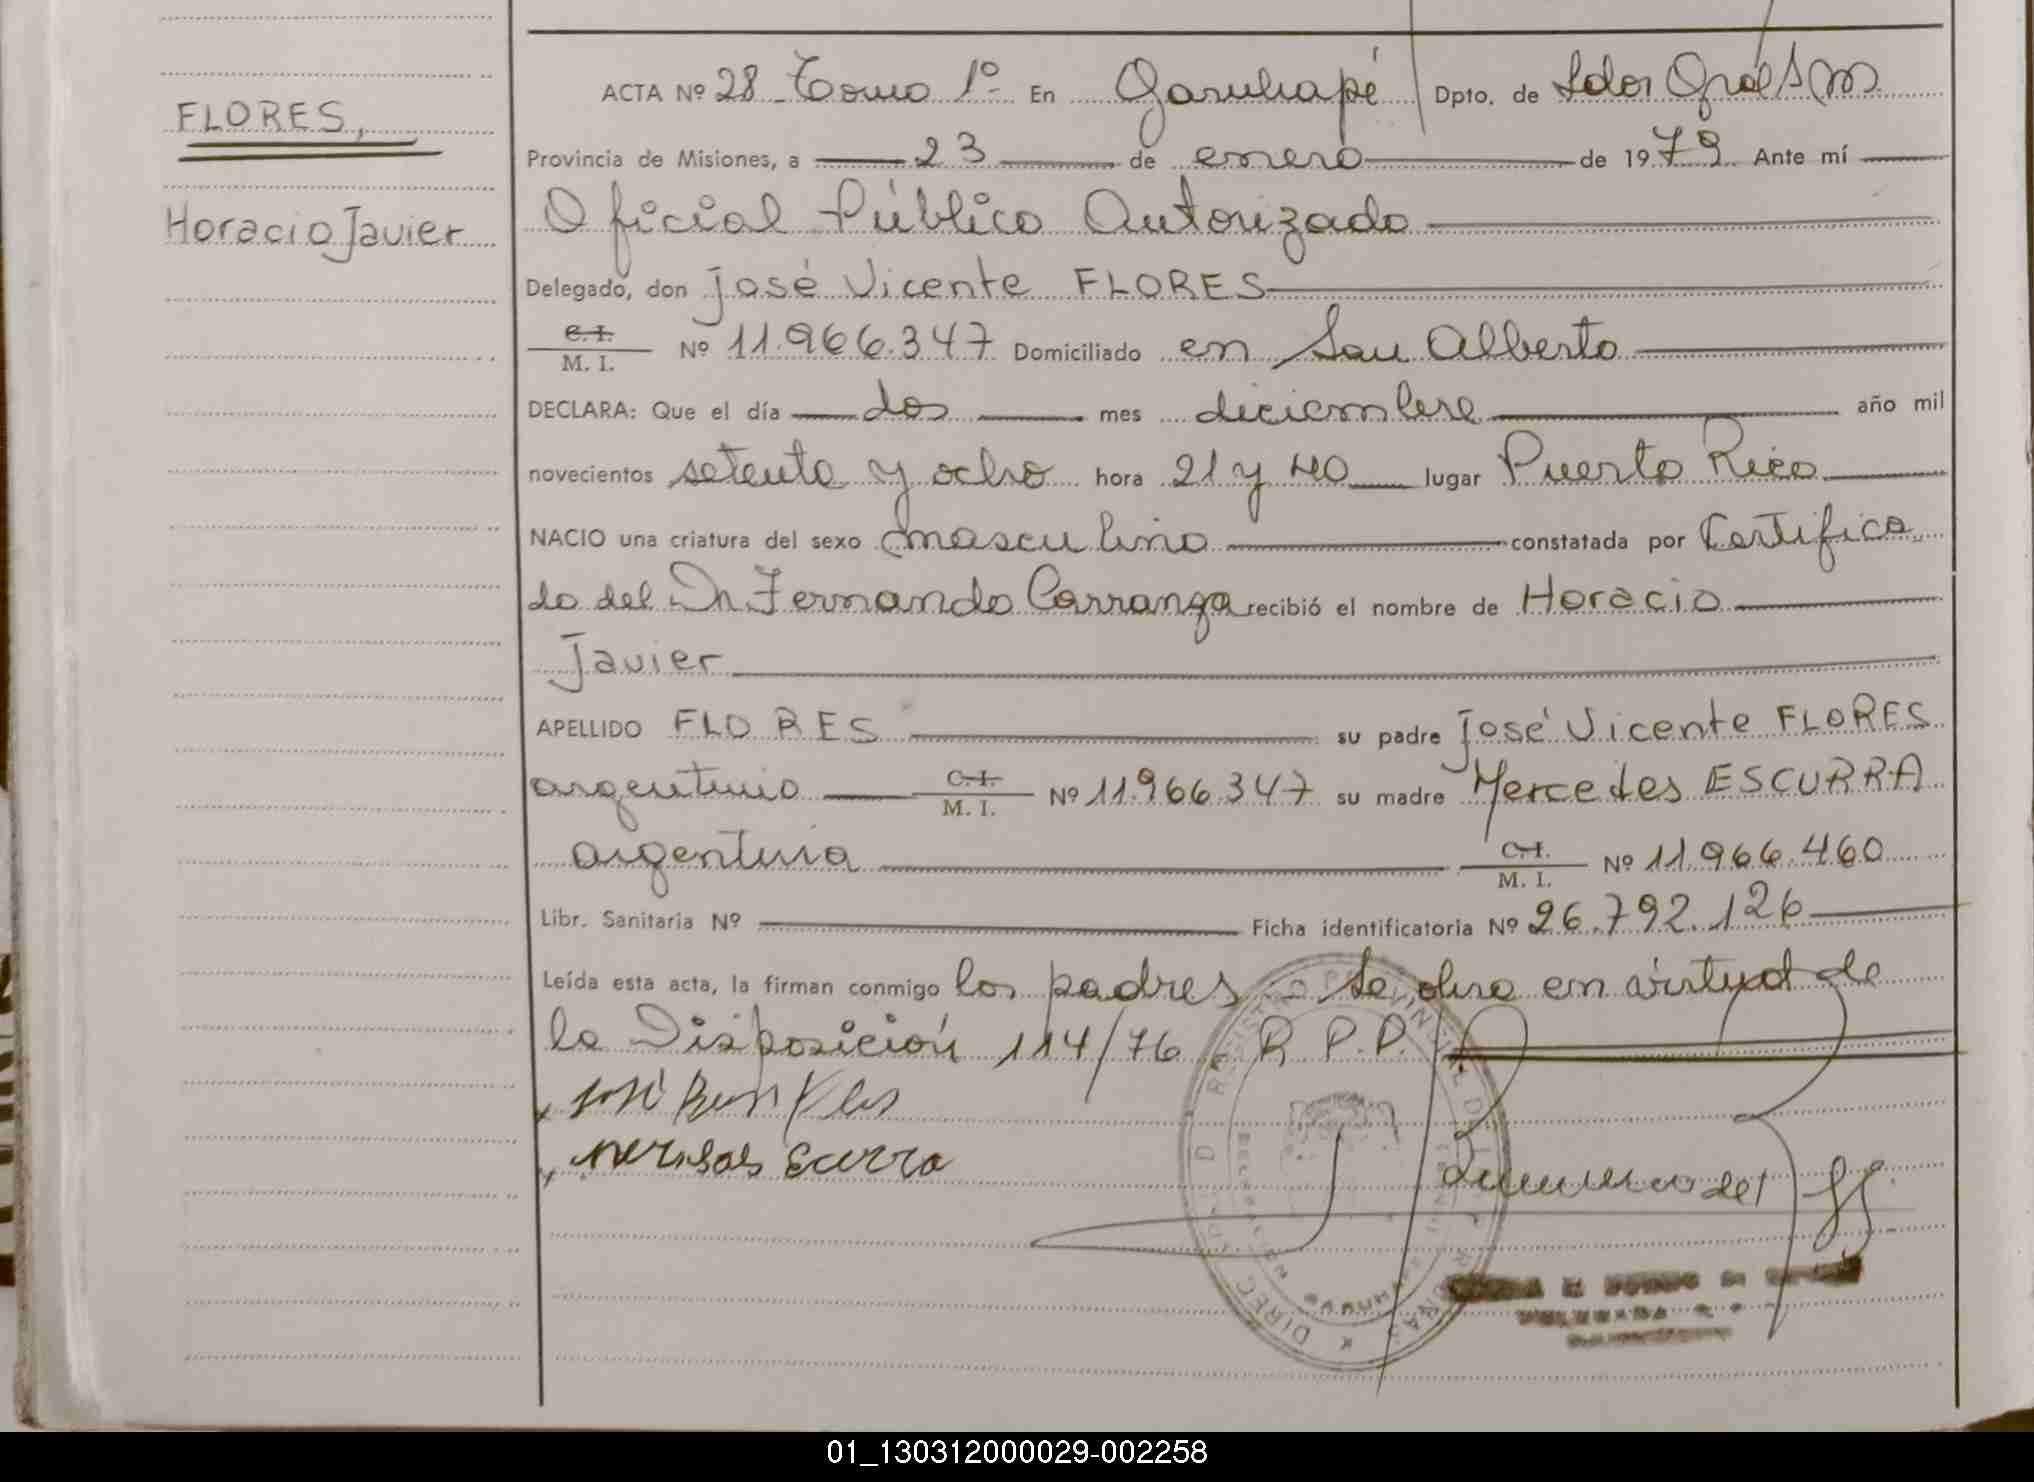 FLORES,
Horacio Javier
ACTA Nº 28 Tomo 1º- En Garuhapé Dpto. de Ldor Gral S M
Provincia de Misiones, a 23 de enero de 1979 Ante mí
Oficial Público Autorizado
Delegado, don José Vicente FLORES
C.I.
M. I. Nº 11.966.347 Domiciliado en San Alberto
DECLARA: Que el día dos mes diciembre año mil
novecientos setenta y ocho hora 21 y 40 lugar Puerto Rico
NACIO una criatura del sexo masculino constatada por Certifica
do del Dr. Fernando Carranza recibió el nombre de Horacio
Javier
APELLIDO FLORES su padre José Vicente FLORES
argentino C.I.
M. I. Nº 11.966.347 su madre Mercedes ESCURRA
argentina C.I.
M. I. Nº 11.966.460
Libr. Sanitaria Nº Ficha identificatoria Nº 26.792.126
Leída esta acta, la firman conmigo los padres - Se obra en virtud de
la Disposición 114/76 R. P. P.
01_130312000029-002258